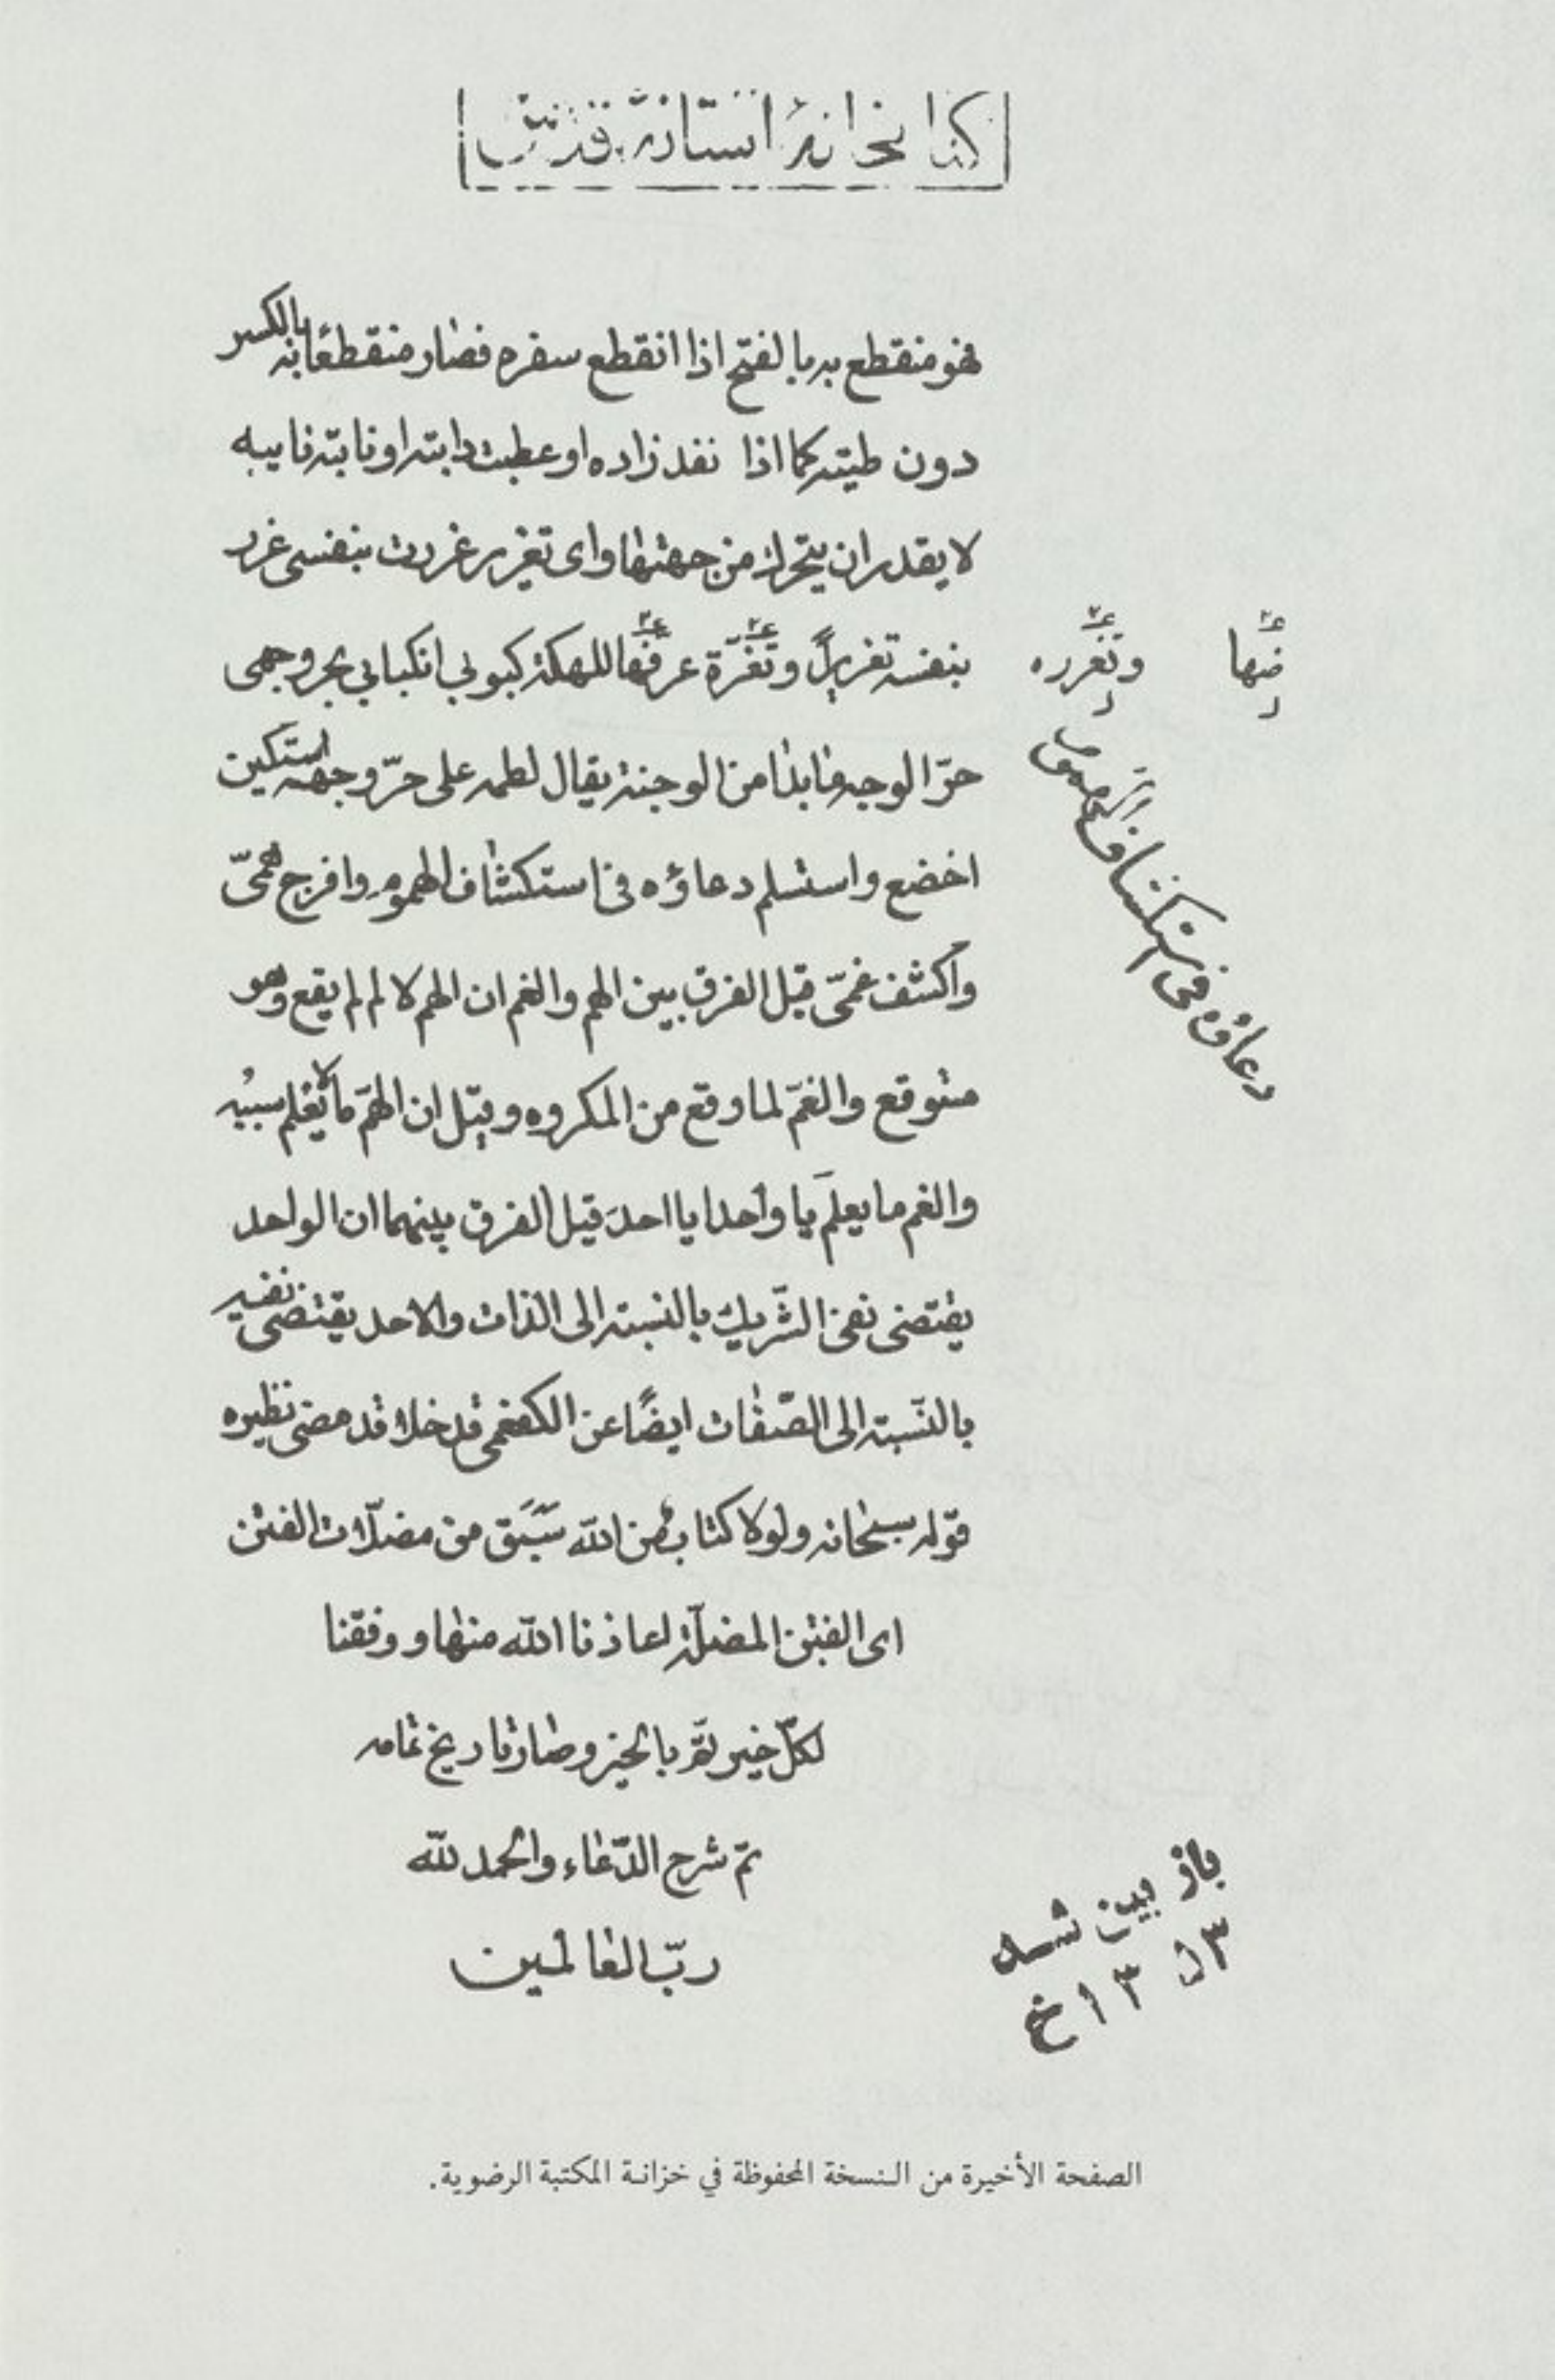 كتابخانهٔ آستانهٔ قدس
فهو منقطع به بالفتح اذا انقطع سفره فصار منقطعًا به بالكسر
دون طيته كما اذا نفد زاده او عطبت دابته او نابته نايبه
لا يقدر ان يتحرك من جهتها واى تغرير غررت بنفسى غرر
بنفسه تغريرًا وتَغُرّة عرّضها للهلكة كبوبي انكبابي بحر وجهى
حرّ الوجه ما بدا من الوجنة يقال لطمه على حرّ وجهه استكين
اخضع واستسلم دعاؤه فى استكشاف الهموم وافرج همّى
واكشف غمّى قيل الفرق بين الهم والغم ان الهم لا لم لم يقع وهو
متوقع والغمّ لما وقع من المكروه وقيل ان الهمّ ما لا يُعْلم سببُه
والغم ما يعلم يا واحد يا احد قيل الفرق بينهما ان الواحد
يقتضى نفى الشّريك بالنسبة الى الذات والاحد يقتضى نفيه
بالنّسبة الى الصّفات ايضًا عن الكفعمى قد خلا قد مضى نظيره
قوله سبحانه ولولا كتاب من الله سَبَق من مضلّات الفتن
اى الفتن المضلّة اعاذنا الله منها ووفقنا
لكلّ خير تمّ بالخير وصار تاريخ تمامه
تمّ شرح الدّعاء والحمد لله
ربّ العالمين
ضها
وتغرره
دعاؤه فى استكشاف
باز بين شد
١٣ خ
الصفحة الأخيرة من النسخة المحفوظة في خزانة المكتبة الرضوية.